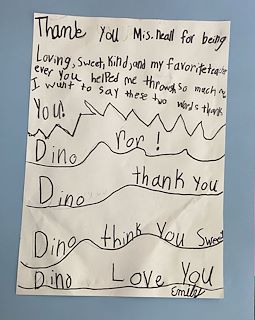 Thank You Mis. Neall for being
Loving, Sweet, Kind, and my favorite teacher
ever You helped me through so mach
I want to say these two words thank
You!
Dino ror!
Dino thank You
Dino think You Sweet
Dino Love You
Emily